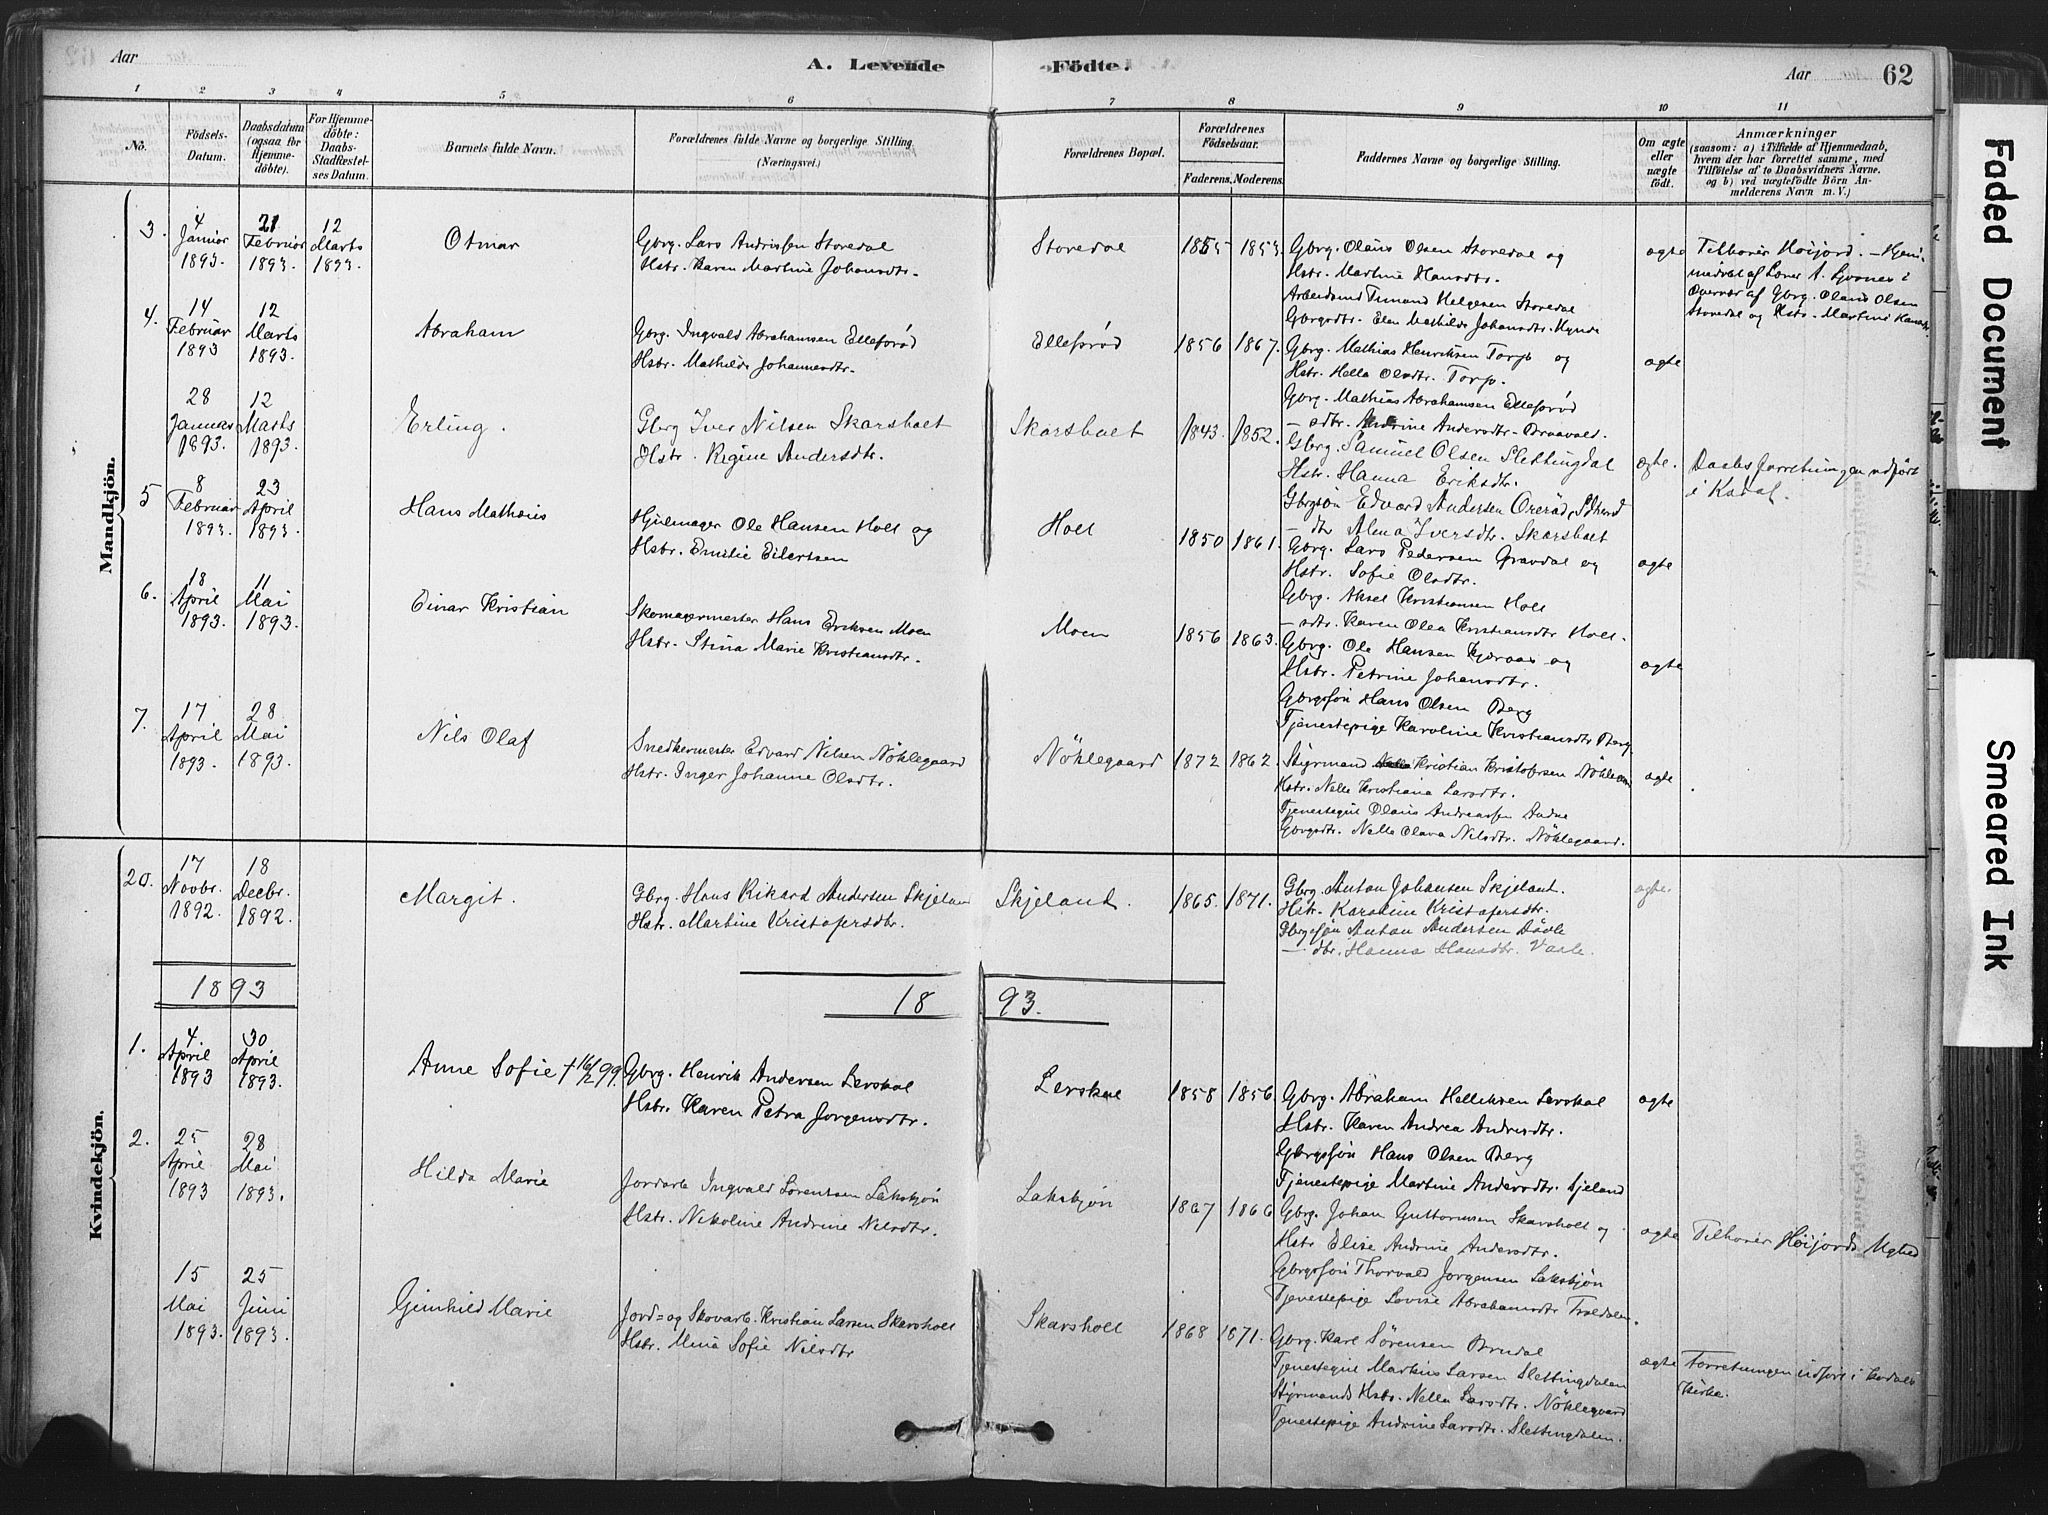 Aar
A. Levende
Födte.
Aar
62
1 2 3 4 5 6 7 8 9 10 11
No.
Födsels-
Datum.
Daabsdatum
(ogsaa for
Hjemme-
döbte).
For Hjemme-
döbte:
Daabs-
Stadfæstel-
ses Datum.
Barnets fulde Navn.
Forældrenes fulde Navne og borgerlige Stilling.
(Næringsvei.)
Forældrenes Bopæl.
Forældrenes
Födselsaar.
Faderens. Moderens.
Faddernes Navne og borgerlige Stilling.
Om ægte
eller
uægte
födt.
Anmærkninger
(saasom: a) i Tilfælde af Hjemmedaab,
hvem der har forrettet samme, med
Tilföielse af to Daabsvidners Navne.
og b) ved uægtefödte Börn An-
melderens Navn m. V.)
Mandkjön.
3.
4
Januar
1893
21
Februar
1893.
12
Marts
1893.
Otmar
Gbrg. Lars Andrissen Storedal
Hstr. Karen Martine Johansdtr.
Storedal
1855
1853.
Gbrg. Olaus Olsen Storedal og
Hstr. Martine Hansdtr.
Arbeidsmd Tmand Helgesen Storedal
Gbrgsdtr. Elen Mathilde Johansdtr. Hynde
ægte
Tilhører Höijord. – Hjem-
medøbt af Lærer A. Ljones i
Overvær af Gbrg. Olaus Olsen
Storedal og Hstr. Martine Hansdtr
4.
14
Februar
1893
12
Marts
1893.
Abraham
Gbrg. Ingvald Abrahamsen Ellefsrød
Hstr. Mathilde Johannesdtr.
Ellefsrød
1856
1867.
Gbrg. Mathias Henriksen Torp og
Hstr. Hella Olsdtr. Torp.
Gbrg. Mathias Abrahamsen Ellefsrød
– sdtr. Andrine Andersdtr. Braavald.
ægte
28
Januar
1893.
12
Marts
1893.
Erling.
Gbrg Iver Nilsen Skarsholt
Hstr. Regine Andersdtr.
Skarsholt
1843.
1852.
Gbrg. Samuel Olsen Slettingdal
Hstr. Hanna Eriksdtr.
Gbrgsön Edvard Andersen Orerød, Sdhrd
– dtr Alma Iversdtr. Skarsholt
ægte.
Daabsforretningen udført
i Kodal.
5
8
Februar
1893.
23
April
1893.
Hans Mathæus
Hjulmager Ole Hansen Holt og
Hsbr. Emilie Eilertsen
Holt
1850
1861.
Gbrg. Lars Pedersen Gravdal og
Hstr. Sofie Olsdtr.
Gbrg. Aksel Kristiansen Holt
– sdtr. Karen Olea Kristiansdtr Holt.
ægte
6.
18
April
1893.
11
Mai
1893.
Einar Kristian
Skomagermester Hans Eriksen Moen
Hstr. Stina Marie Kristiansdtr.
Moen
1856
1863.
Gbrg. Ole Hansen Kjæraas og
Hstr. Petrine Johansdtr.
Gbrgsön Hans Olsen Berg
Tjenestepige Karoline Kristiansdtr Berg
ægte
7.
17
April
1893.
28
Mai
1893.
Nils Olaf
Snedkermester Edvard Nilsen Nöklegaard
Hstr. Inger Johanne Olsdtr.
Nöklegaard
1872
1862.
Styrmand Kristian Kristofersen Nöklegaard
Hstr. Nelle Kristiana Larsdtr.
Tjenestegut Olaus Andreassen
Gbrgsdtr. Nella Olava Nilsdtr. Nöklegaard.
ægte
Kvindekjön.
20.
17
Novbr.
1892.
18
Decbr.
1892.
Margit.
Gbrg. Hans Rikard Andersen Skjelan
Hstr. Martine Kristofersdtr.
Skjeland.
1865.
1871.
Gbrg. Anton Johansen Skjeland.
Hstr. Karoline Kristofersdtr.
Gbrgsön Anton Andersen Døvle
– dtr. Hanna Hansdtr. Vasle.
ægte.
1893
18
93.
1.
4
April
1893
30
April
1893.
Anne Sofie † 16/2 99.
Gbrg. Henrik Andersen Lerskal
Hsbr. Karen Petra Jorgensdtr.
Lerskal
1858
1856
Gbrg. Abraham Helliksen Lerskal
Hstr. Karen Andrea Andersdtr.
Gbrgsfön Hans Olsen Berg
Tjenestepige Martine Andersdtr. Sjeland
ægte
2.
25
April
1893
28
Mai
1893.
Hilda Marie
Jordarb Ingvald Lorentsen Laksbjön
Hstr. Nikoline Andrine Nilsdtr.
Laksbjön
1867
1866
Gbrg. Johan Guttormsen Skarsholt og
Hstr Elise Andrine Andersdtr.
Gbrgsfön Thorvald Jorgensen Laksbjön
Tjenestepige Lovise Abrahamsdtr Troldalen.
ægte
Tilhører Höijords Mghed
15
Mai
1893.
25
Juni
1893.
Gunhild Marie
Jord= og Skovarb. Kristian Larsen Skarsholt
Hstr. Mina Sofie Nilsdtr
Skarsholt
1868
1871.
Gbrg. Karl Sörensen Brudal
Tjenestegut Markus Larsen Slettingdalen
Styrmands Hstr. Nella Larsdtr. Nöklegaard
Tjenestepige Andrine Larsdtr. Slettingdalen.
ægte
Forretningen udført i Kodals
Kirke.
Faded Document
Smeared Ink